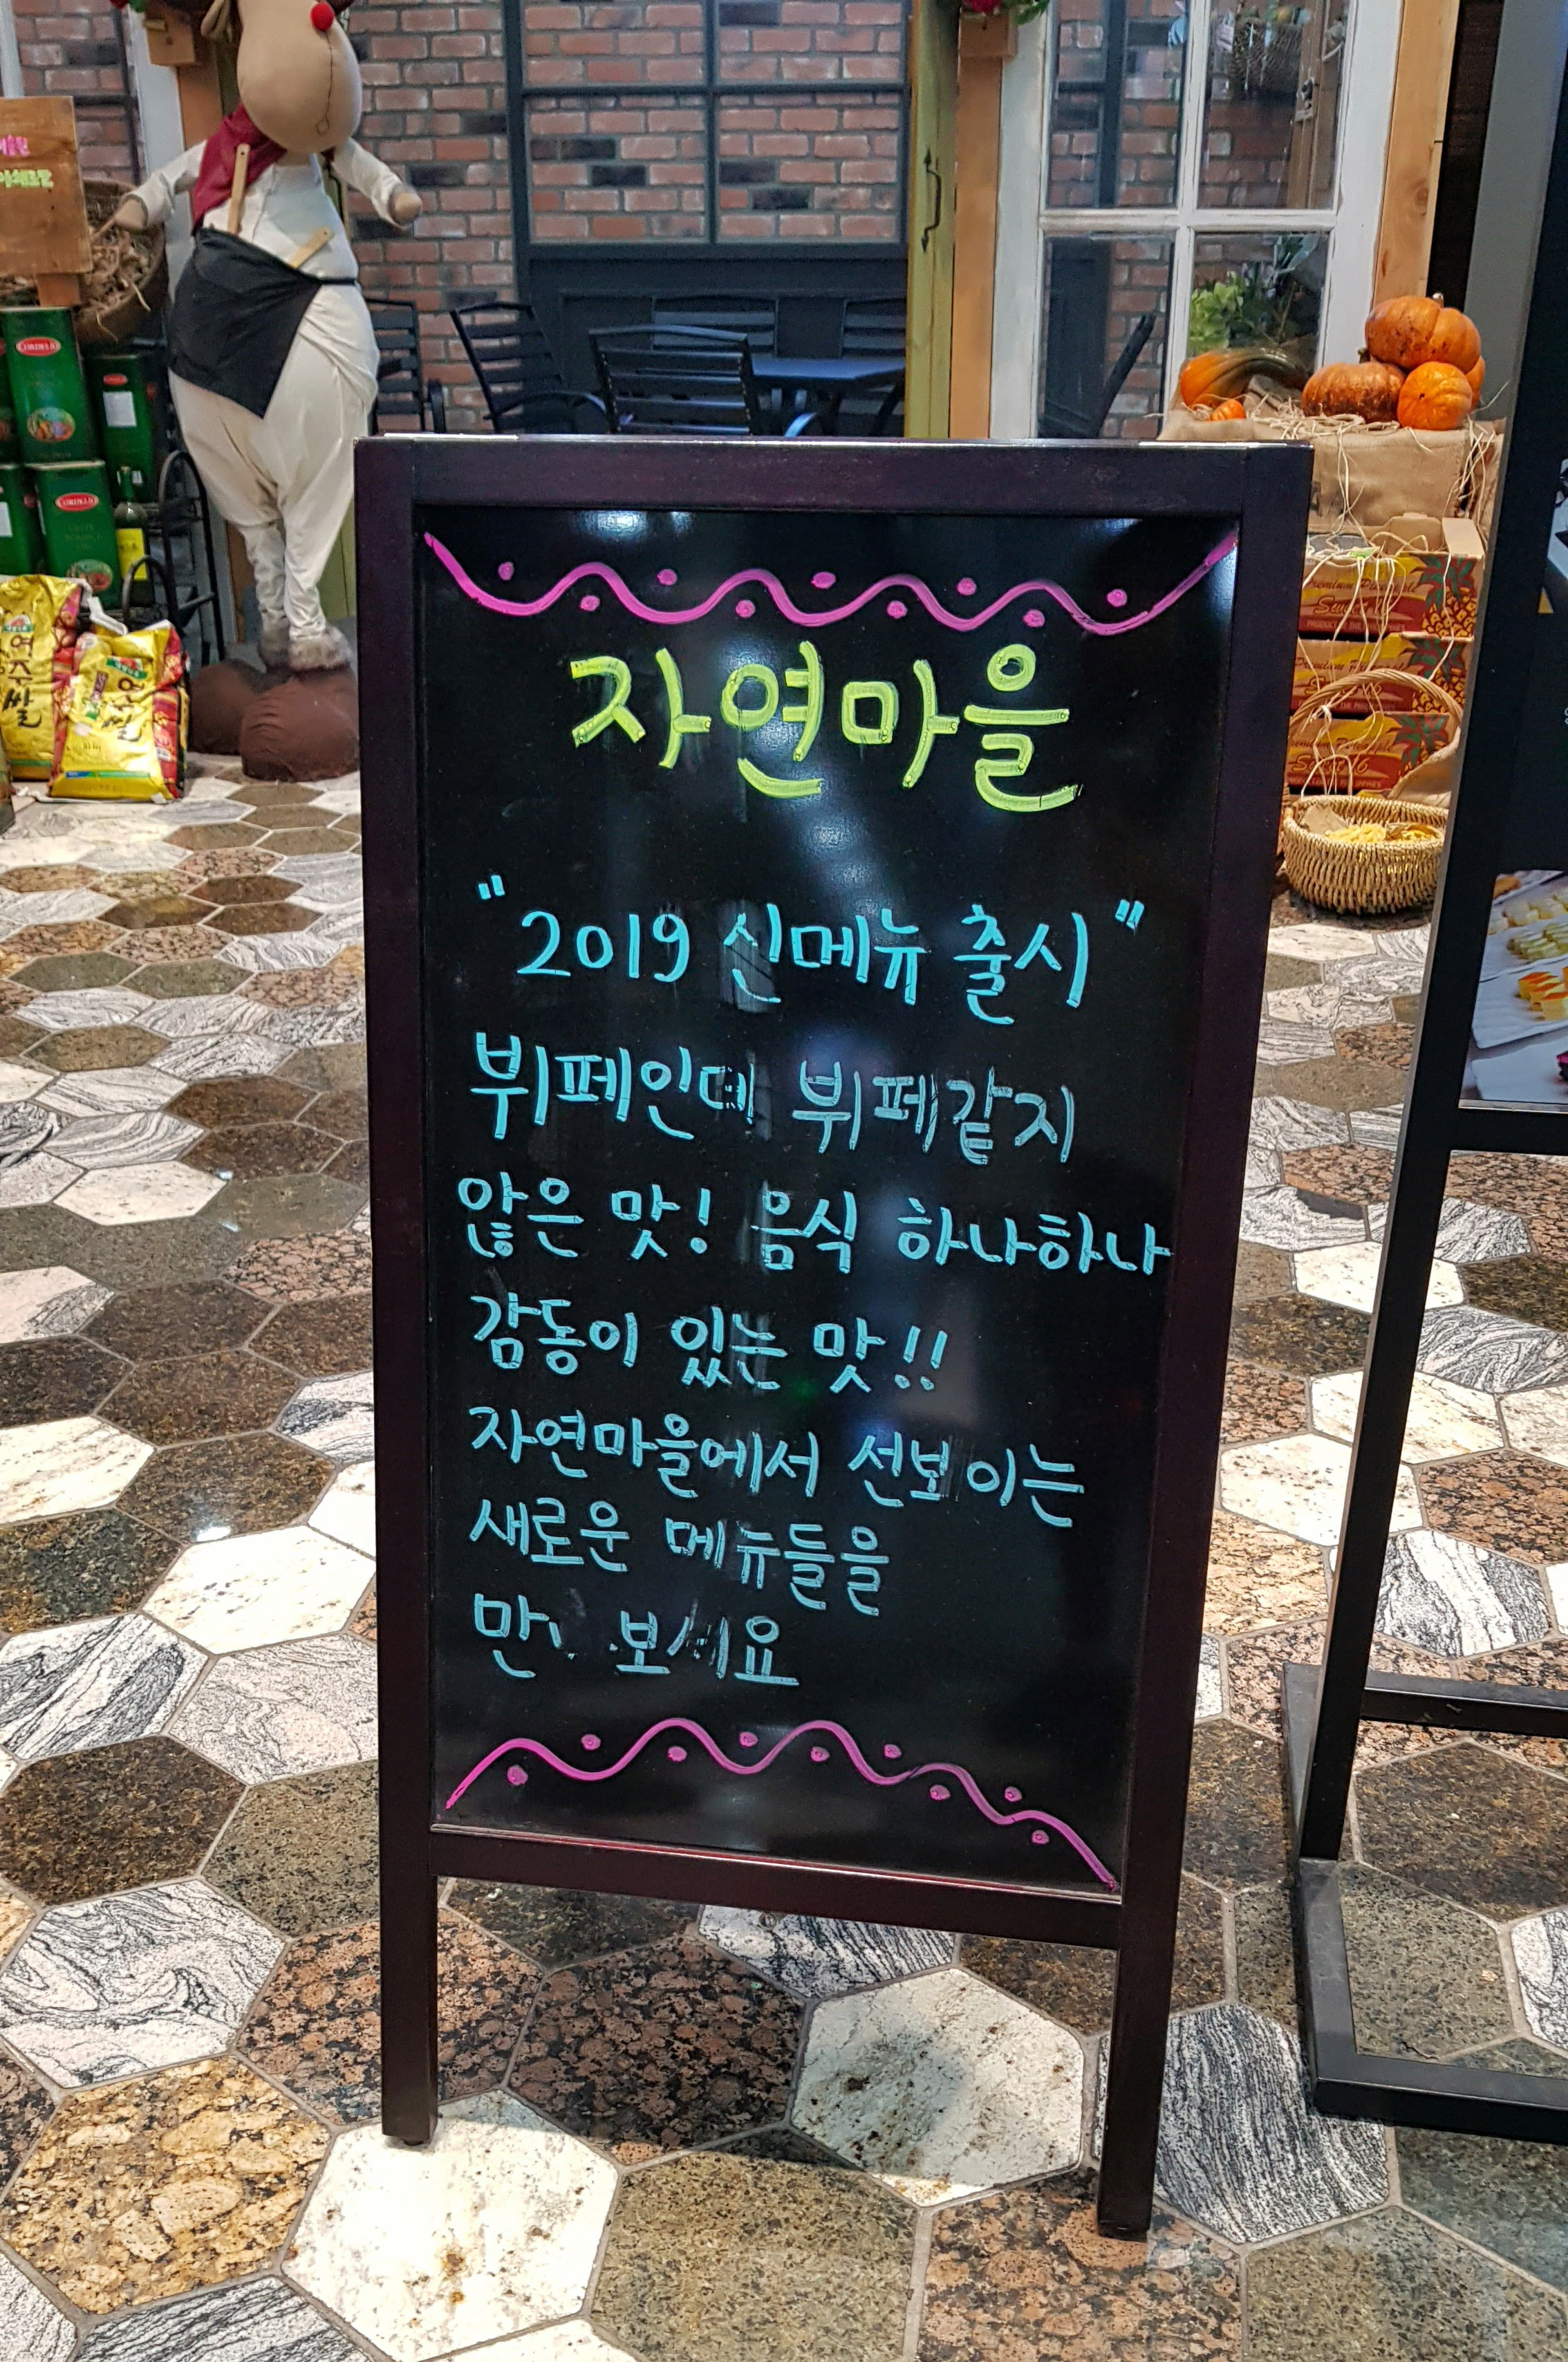 자연마을
"2019 신메뉴 출시"
뷔페인데 뷔페같지
않은 맛! 음식 하나하나
감동이 있는 맛!!
자연마을에서 선보이는
새로운 메뉴들을
보세요
CORDELIA
여주쌀
Premium